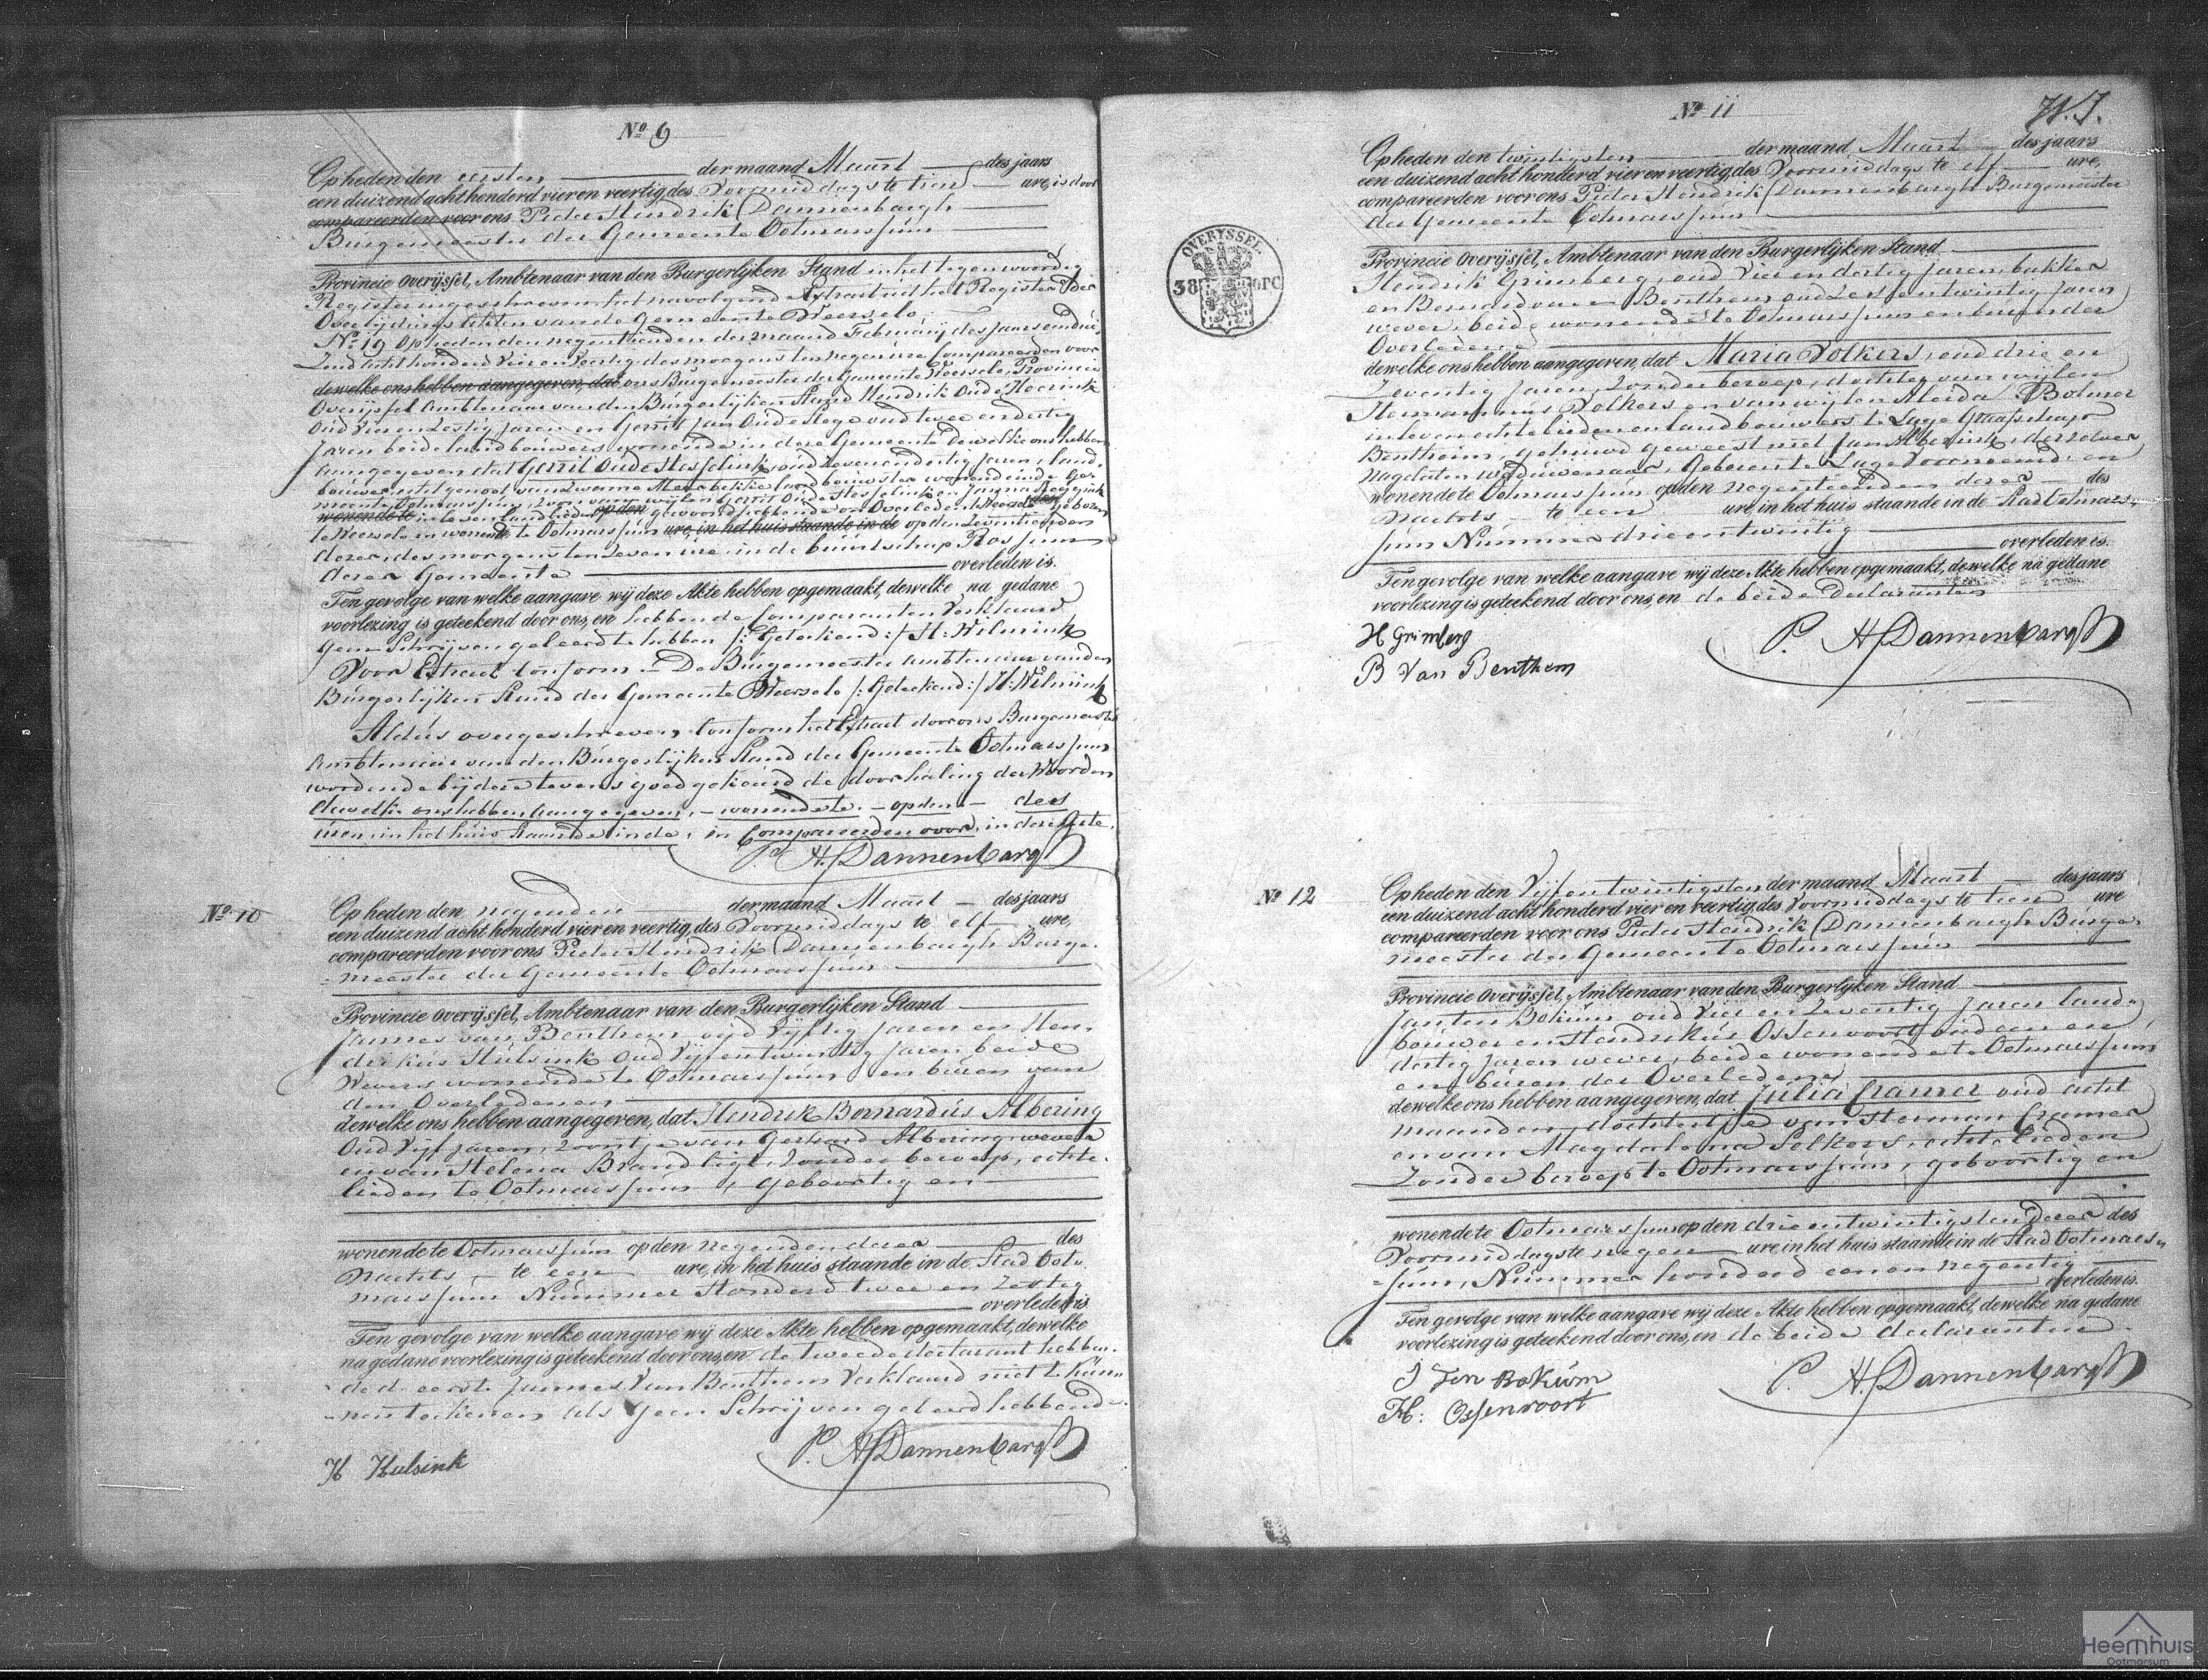 No 9
Op heden den eersten der maand Maart des jaars
een duizend acht honderd vier en veertig, des Voormiddags te tien ure, is door
compareerden voor ons Pieter Hendrik Dannenbargh
Burgemeester der Gemeente Ootmarssum
Provincie Overijssel, Ambtenaar van den Burgerlijken Stand in het tegenwoordig
Register ingeschreven het navolgend Extract uit het Register der
Overlijdings Akten van de Gemeente Weerselo.
No 19 Op heden den negentienden der maand Februarij des jaars een dui
zend acht honderd Vier en Veertig des morgens ten negen ure Compareerden voor
dewelke ons hebben aangegeven, dat ons Burgemeester der Gemeente Weerselo, Provincie
Overijssel Ambtenaar van den Burgerlijken Stand Hendrik Oude
Oud Vier en Zestig jaren en Gerrit Jan Oude Elege oud twee en dertig
Jaren beide landbouwers, wonende in deze Gemeente Dewelke ons hebben
aangegeven dat Gerrit Oude oud Zeven en dertig jaren, land,
bouwer, echtgenoot van landbouwster wonende in de Ge
meente Ootmarssum, Zoon van wijlen Gerrit Oude en
wonende te in leven op den geboren
te Weerselo en wonende te Ootmarssum ure, in het huis staande in de op den Zeventienden
dezer, des morgens ten Zeven ure in de buurtschap Rossum
dezer Gemeente overleden is.
Ten gevolge van welke aangave wij deze Akte hebben opgemaakt, dewelke na gedane
voorlezing is geteekend door ons, en hebben de Comparanten Verklaard
geen Schrijven geleerd te hebben /: Geteekend :/ H: Wilmink
Voor Extract Conform – De Burgemeester Ambtenaar van den
Burgerlijken Stand der Gemeente Weerselo /: Geteekend :/ H: Wilmink
Aldus overgeschreven Conform het Extract door ons Burgemeester
Ambtenaar van den Burgerlijken Stand der Gemeente Ootmarssum
wordende bij deze tevens goedgekeurd de doorhaling der Woorden
dewelke ons hebben aangegeven, – wonende te. – op den – des
uren, in het huis staande in de, en Compareerden voor, in deze Akte.
P. H. Dannenbargh
No 10
Op heden den negenden der maand Maart des jaars
een duizend acht honderd vier en veertig, des Voormiddags te elf ure,
compareerden voor ons Pieter Hendrik Dannenbargh Burge.
meester der Gemeente Ootmarssum
Provincie Overijssel, Ambtenaar van den Burgerlijken Stand
Jannes van Benthem oud Vijftig jaren en Hen.
drikus Hulsink oud Vijf en twintig jaren beide
Wevers wonende te Ootmarssum en buren van
den Overledenen
dewelke ons hebben aangegeven, dat Hendrik Bernardus Albering
Oud Vijf jaren, Zoontje van Gerhard Albering wever
en van Helena Brandligt, Zonder beroep, echte.
lieden te Ootmarssum, geboortig en
wonende te Ootmarssum op den negenden dezer des
Nachts, te een ure, in het huis staande in de Stad Oot.
marssum Nummer Honderd twee en Zestig
overleden is.
Ten gevolge van welke aangave wij deze Akte hebben opgemaakt, dewelke
na gedane voorlezing is geteekend door ons, en de tweede declarant hebben.
de d eerste Jannes Van Benthem Verklaard niet te kun
nen teekenen als geen Schrijven geleerd hebbende.
H Hulsink
P. H. Dannenbargh
OVERYSSEL
38
OPC
No 11
Op heden den twintigsten der maand Maart des jaars
een duizend acht honderd vier en veertig, des Voormiddags te elf ure,
compareerden voor ons Pieter Hendrik Dannenbargh Burgemeester
der Gemeente Ootmarssum
Provincie Overijssel, Ambtenaar van den Burgerlijken Stand
Hendrik Grimberg, oud Vier en dertig jaren, bakker
en Bernard van Benthem oud Zes en twintig jaren
wever, beide wonende te Ootmarssum en buren der
Overledene
dewelke ons hebben aangegeven, dat Maria Volkers, oud drie en
Zeventig jaren, Zonder beroep, dochter van wijlen
Hermannus Volkers en van wijlen Aleida Bolmer
in leven echtelieden en landbouwers te Lage Graafschap
Bentheim, gehuwd geweest met Jan Alberink, derzelver
nagelaten weduwenaar, Geboren te Lage Voornoemd en
wonende te Ootmarssum op den negentienden dezer des
Nachts, te een ure, in het huis staande in de Stad Ootmars.
sum Nummer drie en twintig
overleden is.
Ten gevolge van welke aangave wij deze Akte hebben opgemaakt, dewelke na gedane
voorlezing is geteekend door ons, en de beide Declaranten
H Grimberg
B Van Benthem
P. H. Dannenbargh
No 12
Op heden den Vijf en twintigsten der maand Maart des jaars
een duizend acht honderd vier en veertig, des Voormiddags te tien ure
compareerden voor ons Pieter Hendrik Dannenbargh Burge.
meester der Gemeente Ootmarssum
Provincie Overijssel, Ambtenaar van den Burgerlijken Stand
Jan ten Bokum oud Vier en Zeventig jaren land
bouwer en Hendrikus Ossenvoort oud een en
dertig jaren wever, beide wonende te Ootmarssum
en buren der Overledene
dewelke ons hebben aangegeven, dat Julia Cramer oud acht
maanden, dochtertje van Herman Cramer
en van Magdalena Selkers, echtelieden
Zonder beroep te Ootmarssum, geboortig en
wonende te Ootmarssum op den drie en twintigsten dezer des
Voormiddags te negen ure in het huis staande in de Stad Ootmars.
sum, Nummer honderd een en negentig
overleden is.
Ten gevolge van welke aangave wij deze Akte hebben opgemaakt, dewelke na gedane
voorlezing is geteekend door ons, en de beide declaranten
J Ten Bokum
H: Ossenvoort
P. H. Dannenbargh
Heemhuis
Ootmarsum